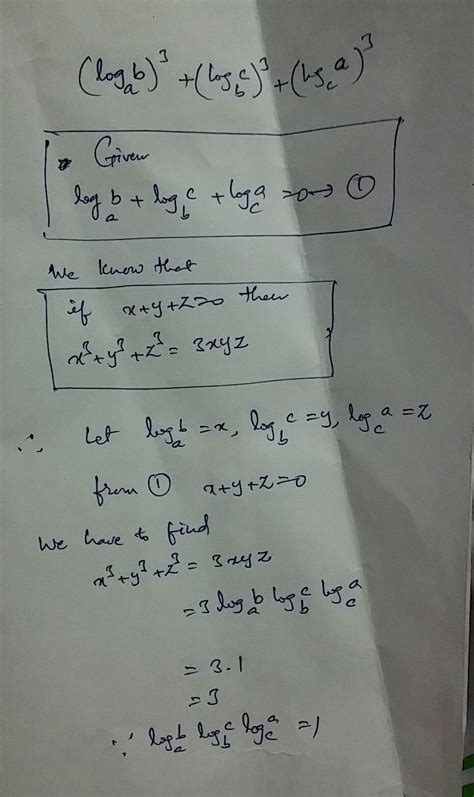 (log_a b)³ + (log_b c)³ + (log_c a)³
• Given
log_a b + log_b c + log_c a = 0 → ①
We know that
if x+y+z=0 then
x³+y³+z³ = 3xyz
∴ Let log_a b = x, log_b c = y, log_c a = z
from ① x+y+z=0
We have to find
x³+y³+z³ = 3xyz
= 3 log_a b log_b c log_c a
= 3.1
= 3
∵ log_a b log_b c log_c a = 1